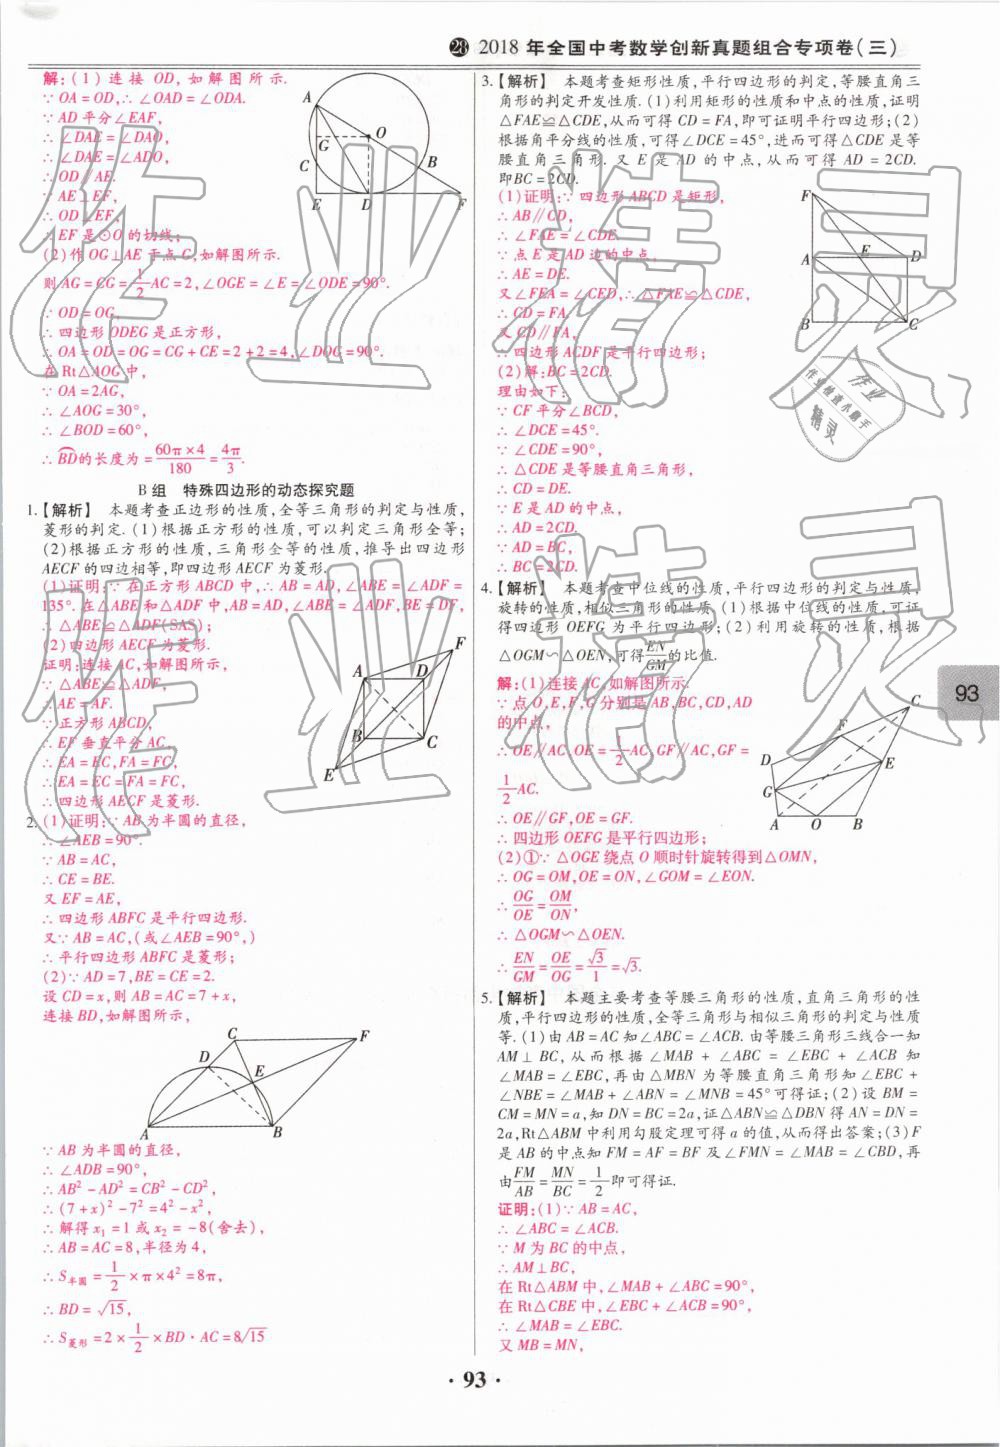 28 2018年全国中考数学创新真题组合专项卷(三)
解:(1)连接 OD,如解图所示.
∵OA=OD,∴∠OAD=∠ODA.
∵AD平分∠EAF,
∴∠DAE=∠DAO,
∴∠DAE=∠ADO,
∴OD∥AE.
∵AE⊥EF,
∴OD⊥EF,
∴EF是⊙O的切线;
(2)作OG⊥AE于点G,如解图所示.
则AG=CG=1/2AC=2,∠OGE=∠E=∠ODE=90°.
∵OD=OG,
∴四边形ODEG是正方形,
∴OA=OD=OG=CG+CE=2+2=4,∠DOG=90°.
在Rt△AOG中,
∵OA=2AG,
∴∠AOG=30°,
∴∠BOD=60°,
∴BD的长度为=60π×4/180=4π/3.
A
O
G
C
B
E
D
F
B组 特殊四边形的动态探究题
1.【解析】 本题考查正边形的性质,全等三角形的判定与性质,
菱形的判定.(1)根据正方形的性质,可以判定三角形全等;
(2)根据正方形的性质,三角形全等的性质,推导出四边形
AECF的四边相等,即四边形AECF为菱形.
(1)证明:∵在正方形ABCD中,∴AB=AD,∠ABE=∠ADF=
135°.在△ABE和△ADF中,AB=AD,∠ABE=∠ADF,BE=DF,
∴△ABE≌△ADF(SAS);
(2)四边形AECF为菱形.
证明:连接AC,如解图所示,
∵△ABE≌△ADF,
∴AE=AF.
∵正方形ABCD,
∴EF垂直平分AC,
∴EA=EC,FA=FC,
∴EA=EC=FA=FC,
∴四边形AECF是菱形.
F
A
D
B
C
E
2.(1)证明:∵AB为半圆的直径,
∴∠AEB=90°.
∵AB=AC,
∴CE=BE.
又EF=AE,
∴四边形ABFC是平行四边形.
又∵AB=AC,(或∠AEB=90°,)
∴平行四边形ABFC是菱形;
(2)∵AD=7,BE=CE=2.
设CD=x,则AB=AC=7+x,
连接BD,如解图所示,
C
F
D
E
A
B
∵AB为半圆的直径,
∴∠ADB=90°,
∴AB²-AD²=CB²-CD²,
∴(7+x)²-7²=4²-x²,
∴解得x₁=1或x₂=-8(舍去),
∴AB=AC=8,半径为4,
∴S半圆=1/2×π×4²=8π,
∴BD=√15,
∴S菱形=2×1/2×BD·AC=8√15
3.【解析】 本题考查矩形性质,平行四边形的判定,等腰直角三
角形的判定开发性质.(1)利用矩形的性质和中点的性质,证明
△FAE≌△CDE,从而可得CD=FA,即可证明平行四边形;(2)
根据角平分线的性质,可得∠DCE=45°,进而可得△CDE是等
腰直角三角形.又E是AD的中点,从而可得AD=2CD.
即BC=2CD.
(1)证明:∵四边形ABCD是矩形,
∴AB∥CD,
∴∠FAE=∠CDE.
∵点E是AD边的中点,
∴AE=DE.
又∠FEA=∠CED,∴△FAE≌△CDE,
∴CD=FA.
又CD∥FA,
∴四边形ACDF是平行四边形;
(2)解:BC=2CD.
理由如下:
∵CF平分∠BCD,
∴∠DCE=45°.
∵∠CDE=90°,
∴△CDE是等腰直角三角形,
∴CD=DE.
∵E是AD的中点,
∴AD=2CD.
∵AD=BC,
∴BC=2CD.
F
E
A
D
B
C
4.【解析】 本题考查中位线的性质,平行四边形的判定与性质,
旋转的性质,相似三角形的性质.(1)根据中位线的性质,可证
得四边形OEFG为平行四边形;(2)利用旋转的性质,根据
△OGM∽△OEN,可得EN/GM的比值.
解:(1)连接AC,如解图所示.
∵点O,E,F,G分别是AB,BC,CD,AD
的中点,
∴OE∥AC,OE=1/2AC,GF∥AC,GF=
1/2AC.
∴OE∥GF,OE=GF.
∴四边形OEFG是平行四边形;
(2)①∵△OGE绕点O顺时针旋转得到△OMN,
∴OG=OM,OE=ON,∠GOM=∠EON.
∴OG/OE=OM/ON,
∴△OGM∽△OEN.
∴EN/GM=OE/OG=√3/1=√3.
C
F
D
E
G
A
O
B
5.【解析】 本题主要考查等腰三角形的性质,直角三角形的性
质,平行四边形的性质,全等三角形与相似三角形的判定与性质
等.(1)由AB=AC知∠ABC=∠ACB.由等腰三角形三线合一知
AM⊥BC,从而根据∠MAB+∠ABC=∠EBC+∠ACB知
∠MAB=∠EBC,再由△MBN为等腰直角三角形知∠EBC+
∠NBE=∠MAB+∠ABN=∠MNB=45°可得证;(2)设BM=
CM=MN=a,知DN=BC=2a,证△ABN≌△DBN得AN=DN=
2a,Rt△ABM中利用勾股定理可得a的值,从而得出答案;(3)F
是AB的中点知FM=AF=BF及∠FMN=∠MAB=∠CBD,再
由FM/AB=MN/BC=1/2即可得证.
证明:(1)∵AB=AC,
∴∠ABC=∠ACB.
∵M为BC的中点,
∴AM⊥BC,
在Rt△ABM中,∠MAB+∠ABC=90°,
在Rt△CBE中,∠EBC+∠ACB=90°,
∴∠MAB=∠EBC.
又MB=MN,
93
·93·
作业精灵
作业检查小助手